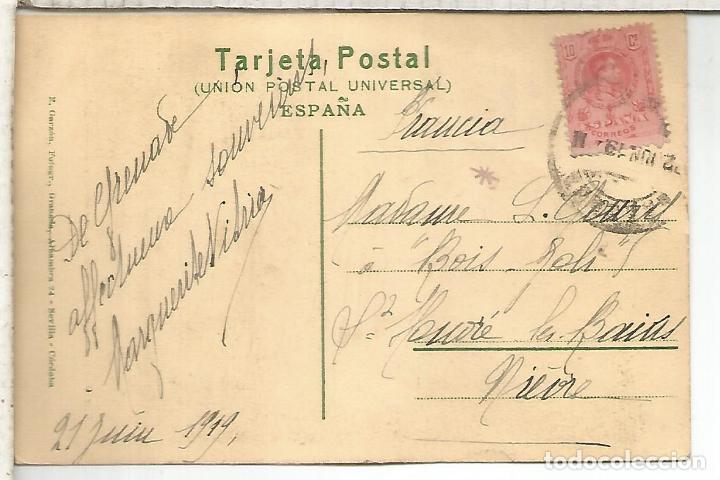 Tarjeta Postal
(UNIÓN POSTAL UNIVERSAL)
ESPAÑA
E. Garzón, Fotogr., Granada, Alhambra 24 - Sevilla - Córdoba
De Grenade
affectueux souvenirs,
Marguerite
21 Juin 1919,
10 Cs
CORREOS
Francia
Madame L.
à "Bois-Joli"
St Honoré les Bains
Nièvre
todocoleccion.net